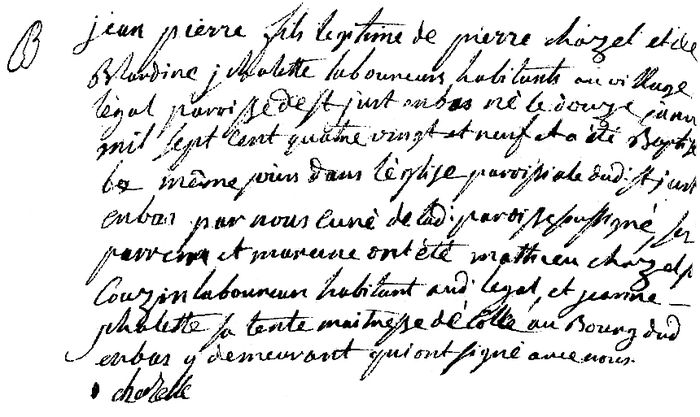 B jean pierre fils legitime de pierre chazel et de
Blandine jchalette laboureurs habitants au village
légal paroisse de st just enbas né le douze janv
mil sept cent quatre vingt et neuf et a été Baptisé
le même jour dans l'église paroissiale dud st just
enbas par nous curé de lad paroisse soussigné son
parrein et mareine ont été mathieu chazel
Couzin laboureur habitant aud legal, et jeanne
sa tente maitresse décolle au Bourg dud
enbas y demeurant qui ont signé avec nous